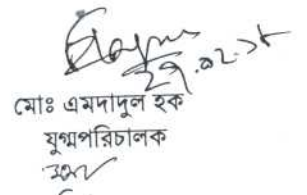 ২৭.০২.১৮
মোঃ এমদাদুল হক
যুগ্মপরিচালক